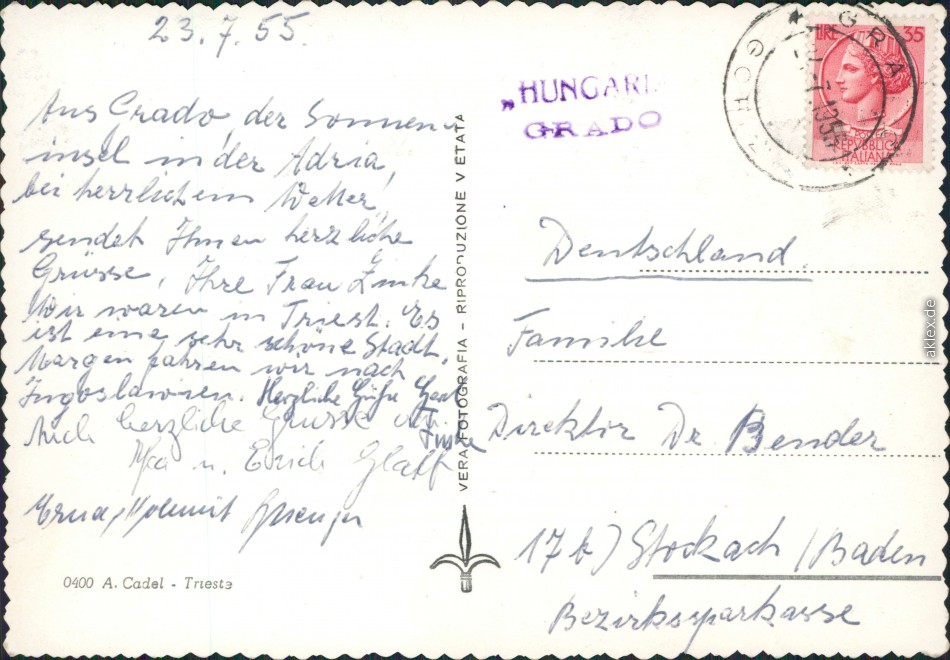 23.7.55.
Aus Grado, der Sonnen-
insel in der Adria,
bei herrlichem Wetter
sendet Ihnen herzliche
Grüsse, Ihre Frau Zinke
Wir waren in Triest. Es
ist eine sehr schöne Stadt.
Morgen fahren wir nach
Jugoslawien. Herzliche Grüße
Auch herzliche Grüsse
u. Erich Glatt
Erna, Helmut
0400 A. Cadel - Trieste
VERA FOTOGRAFIA - RIPRODUZIONE VIETATA
„HUNGARI
GRADO
GRA
LIRE 35
POSTE
REPVBBLICA
ITALIANA
Deutschland
Familie
Direktor Dr. Bender
17b) Stockach / Baden
Bezirkssparkasse
aklex.de